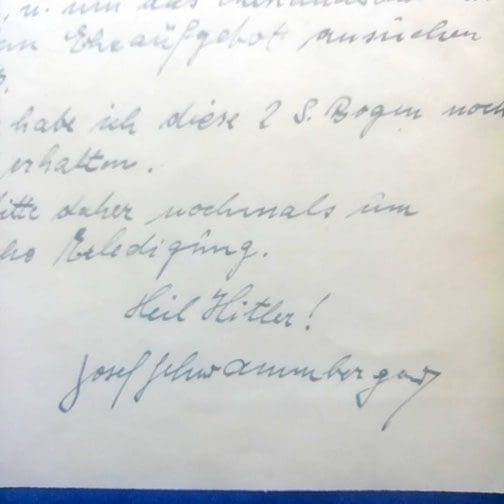 u. um das
Eheaufgebot ansuchen
habe ich diese 2 S. Bogen noch
erhalten.
bitte daher nochmals um
Erledigung.
Heil Hitler!
Josef Schwammberger